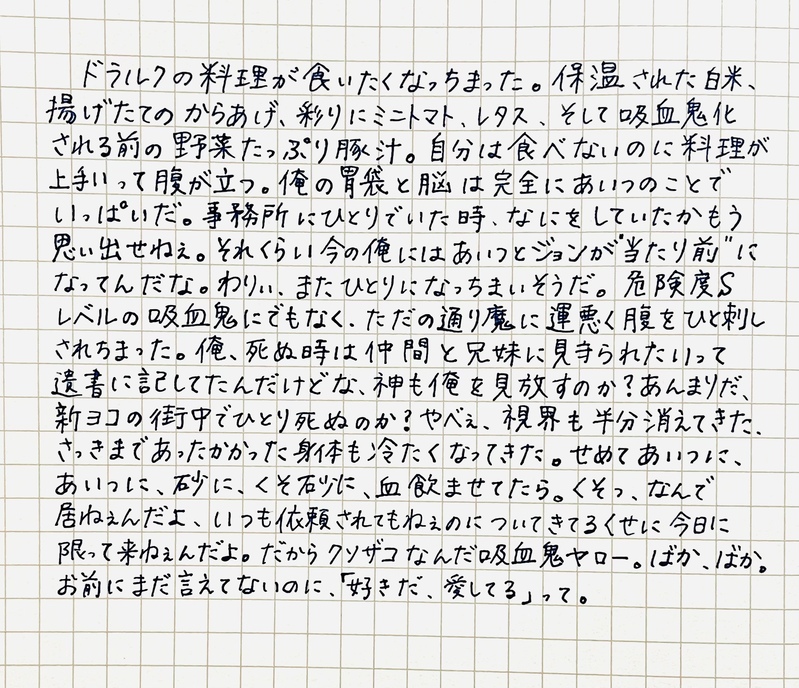 ドラルクの料理が食いたくなっちまった。保温された白米、
揚げたてのからあげ、彩りにミニトマト、レタス、そして吸血鬼化
される前の野菜たっぷり豚汁。自分は食べないのに料理が
上手いって腹が立つ。俺の胃袋と脳は完全にあいつのことで
いっぱいだ。事務所にひとりでいた時、なにをしていたかもう
思い出せねぇ。それくらい今の俺にはあいつとジョンが"当たり前"に
なってんだな。わりぃ、またひとりになっちまいそうだ。危険度S
レベルの吸血鬼にでもなく、ただの通り魔に運悪く腹をひと刺し
されちまった。俺、死ぬ時は仲間と兄妹に見守られたいって
遺書に記してたんだけどな、神も俺を見放すのか?あんまりだ、
新ヨコの街中でひとり死ぬのか?やべぇ、視界も半分消えてきた、
さっきまであったかかった身体も冷たくなってきた。せめてあいつに、
あいつに、砂に、くそ砂に、血飲ませてたら。くそっ、なんで
居ねぇんだよ、いつも依頼されてもねぇのについてきてるくせに今日に
限って来ねぇんだよ。だからクソザコなんだ吸血鬼ヤロー。ばか、ばか。
お前にまだ言えてないのに、「好きだ、愛してる」って。